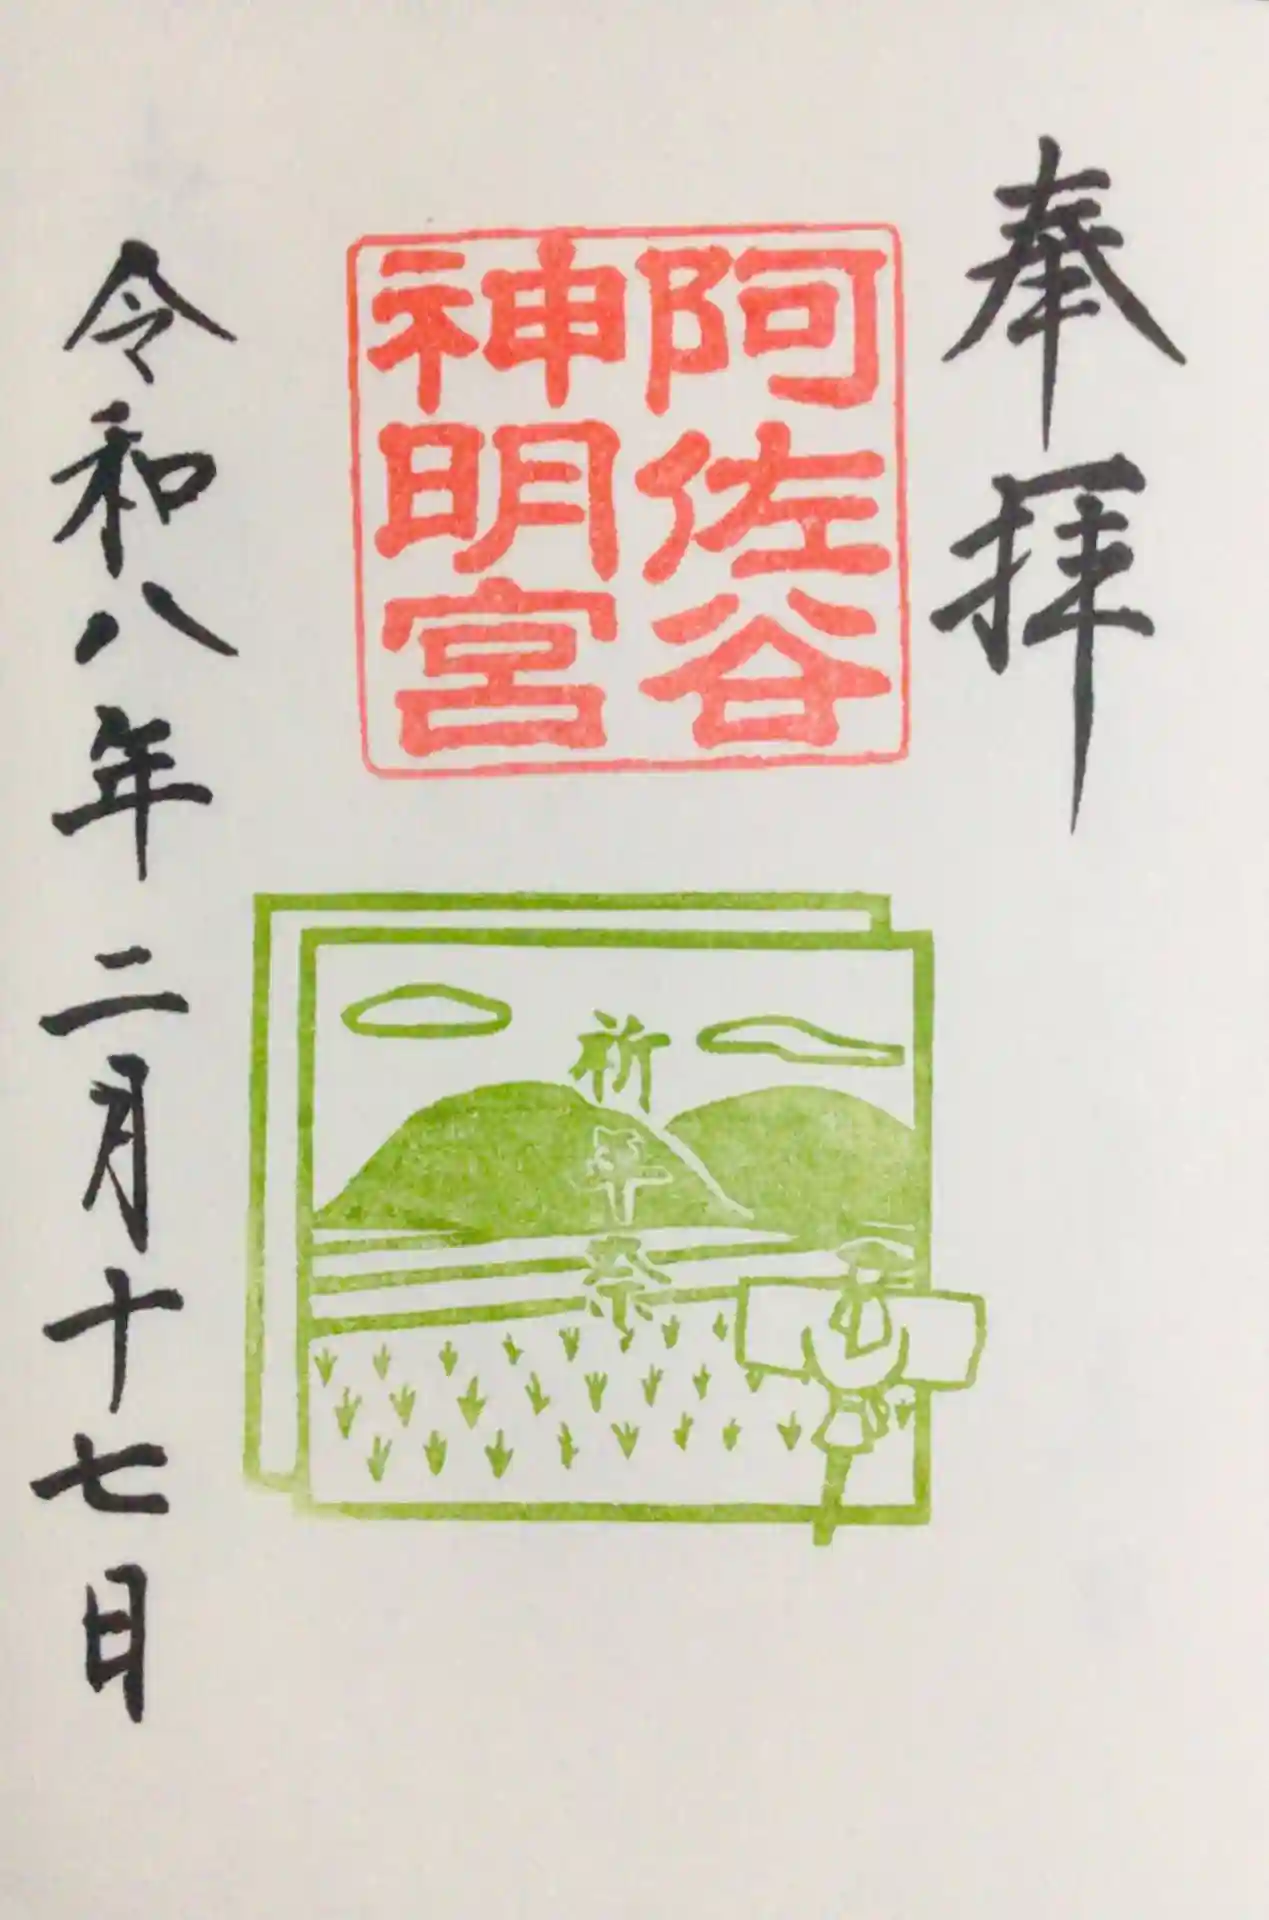 奉拝
阿佐谷
神明宮
祈年祭
令和八年二月十七日